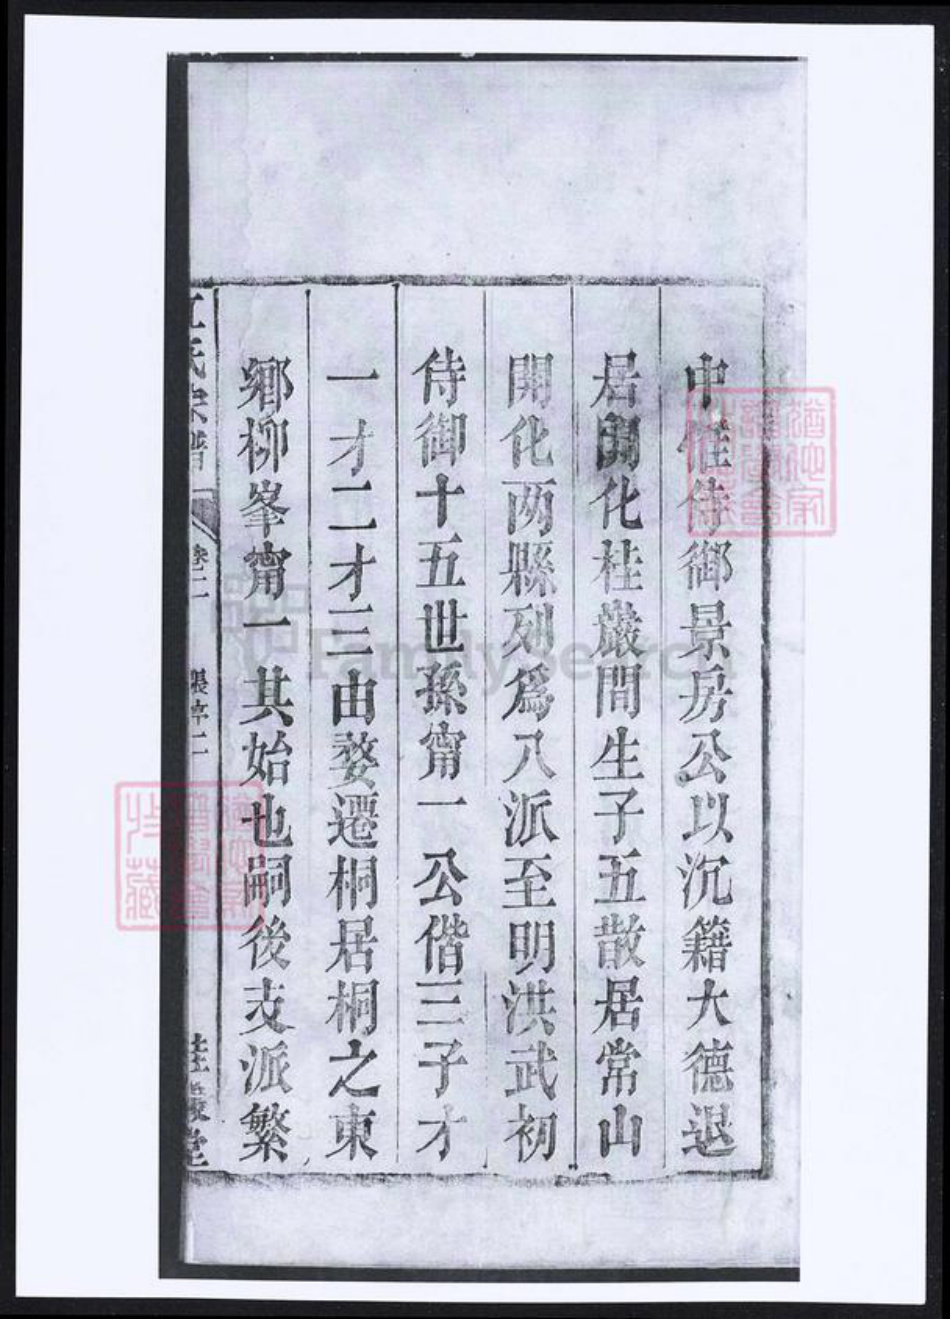 中惟侍御景房公以沉籍大德退
居開化桂巖間生子五散居常山
開化两縣列爲八派至明洪武初
侍御十五世孫甯一公偕三子才
一才二才三由婺遷桐居桐之東
鄉柳峯甯一其始也嗣後支派繁
江氏宗譜 卷二 二 桂巖堂
FamilySearch